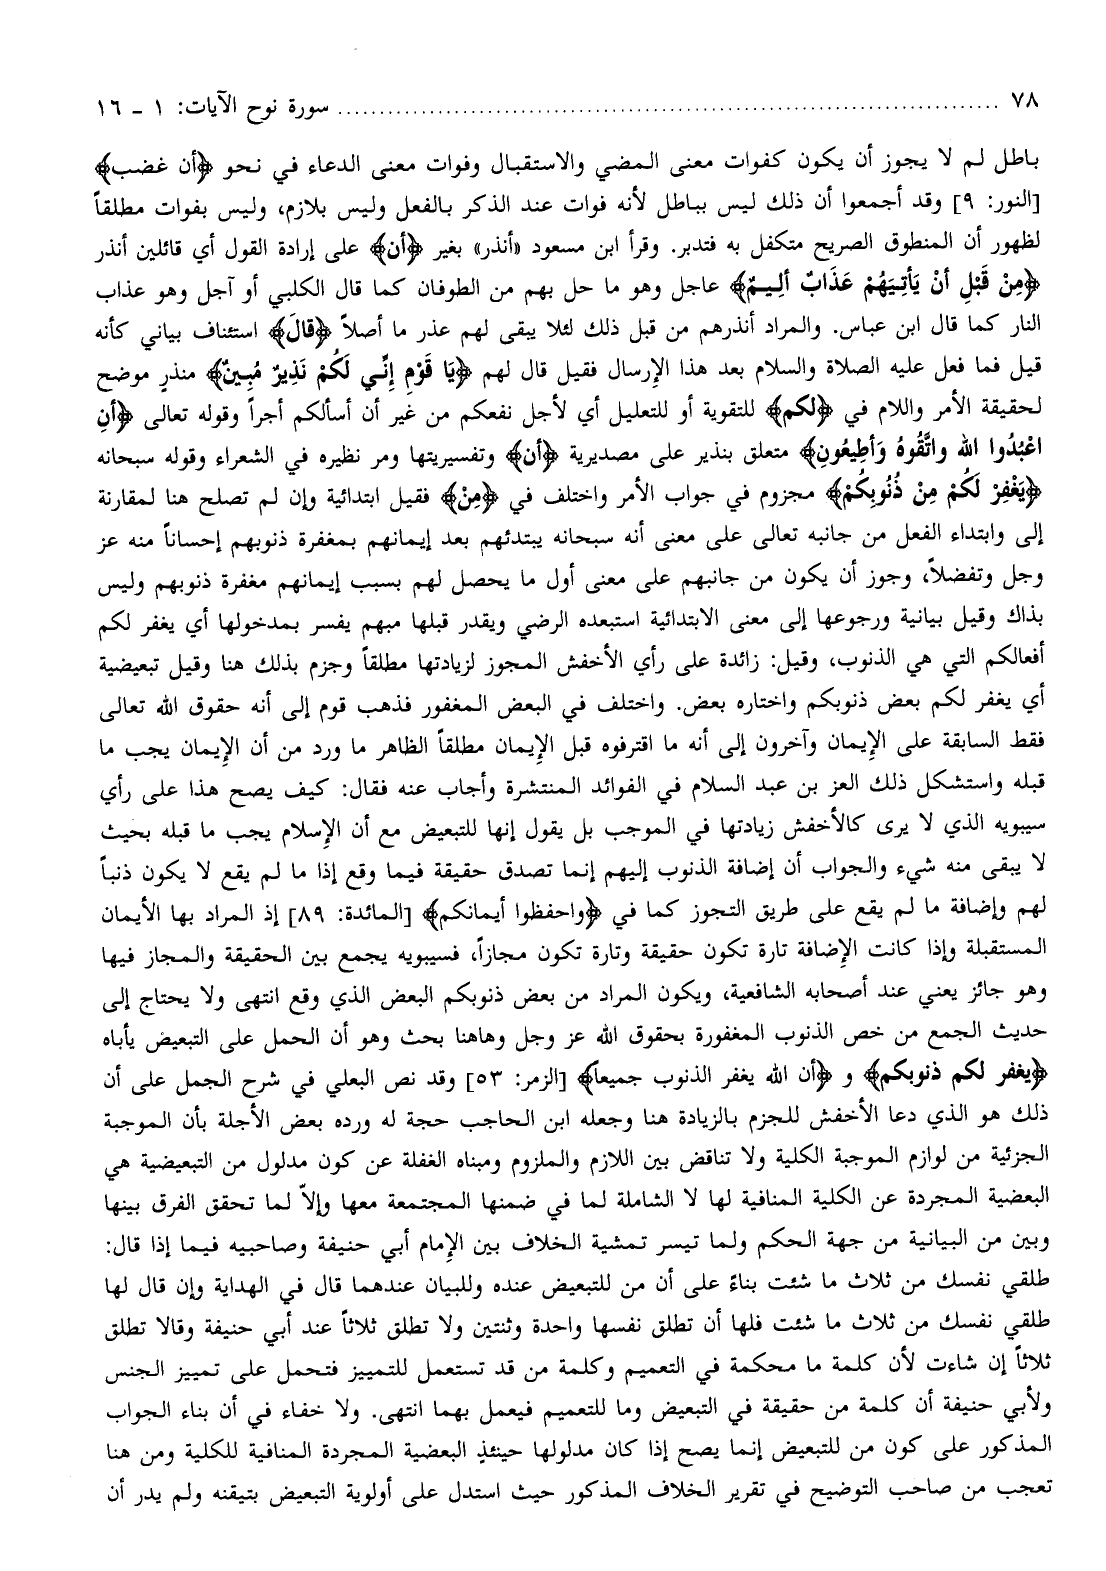 ٧٨ ........................................ سورة نوح الآيات: ١ ـ ١٦
باطل لم لا يجوز أن يكون كفوات معنى المضي والاستقبال وفوات معنى الدعاء في نحو ﴿أن غضب﴾
[النور: ٩] وقد أجمعوا أن ذلك ليس بباطل لأنه فوات عند الذكر بالفعل وليس بلازم، وليس بفوات مطلقاً
لظهور أن المنطوق الصريح متكفل به فتدبر. وقرأ ابن مسعود «أنذر» بغير ﴿أن﴾ على إرادة القول أي قائلين أنذر
﴿مِنْ قَبْلِ أنْ يَأتِيَهُمْ عَذَابٌ ألِيمٌ﴾ عاجل وهو ما حل بهم من الطوفان كما قال الكلبي أو آجل وهو عذاب
النار كما قال ابن عباس. والمراد أنذرهم من قبل ذلك لئلا يبقى لهم عذر ما أصلاً ﴿قالَ﴾ استئناف بياني كأنه
قيل فما فعل عليه الصلاة والسلام بعد هذا الإرسال فقيل قال لهم ﴿يَا قَوْمِ إنِّي لَكُمْ نَذِيرٌ مُبِينٌ﴾ منذرٍ موضح
لحقيقة الأمر واللام في ﴿لكم﴾ للتقوية أو للتعليل أي لأجل نفعكم من غير أن أسألكم أجراً وقوله تعالى ﴿أنِ
اعْبُدُوا الله واتَّقُوهُ وَأطِيعُونِ﴾ متعلق بنذير على مصديرية ﴿أن﴾ وتفسيريتها ومر نظيره في الشعراء وقوله سبحانه
﴿يَغْفِرْ لَكُمْ مِنْ ذُنُوبِكُمْ﴾ مجزوم في جواب الأمر واختلف في ﴿مِنْ﴾ فقيل ابتدائية وإن لم تصلح هنا لمقارنة
إلى وابتداء الفعل من جانبه تعالى على معنى أنه سبحانه يبتدئهم بعد إيمانهم بمغفرة ذنوبهم إحساناً منه عز
وجل وتفضلاً، وجوز أن يكون من جانبهم على معنى أول ما يحصل لهم بسبب إيمانهم مغفرة ذنوبهم وليس
بذاك وقيل بيانية ورجوعها إلى معنى الابتدائية استبعده الرضي ويقدر قبلها مبهم يفسر بمدخولها أي يغفر لكم
أفعالكم التي هي الذنوب، وقيل: زائدة على رأي الأخفش المجوز لزيادتها مطلقاً وجزم بذلك هنا وقيل تبعيضية
أي يغفر لكم بعض ذنوبكم واختاره بعض. واختلف في البعض المغفور فذهب قوم إلى أنه حقوق الله تعالى
فقط السابقة على الإيمان وآخرون إلى أنه ما اقترفوه قبل الإيمان مطلقاً الظاهر ما ورد من أن الإيمان يجب ما
قبله واستشكل ذلك العز بن عبد السلام في الفوائد المنتشرة وأجاب عنه فقال: كيف يصح هذا على رأي
سيبويه الذي لا يرى كالأخفش زيادتها في الموجب بل يقول إنها للتبعيض مع أن الإسلام يجب ما قبله بحيث
لا يبقى منه شيء والجواب أن إضافة الذنوب إليهم إنما تصدق حقيقة فيما وقع إذا ما لم يقع لا يكون ذنباً
لهم وإضافة ما لم يقع على طريق التجوز كما في ﴿واحفظوا أيمانكم﴾ [المائدة: ٨٩] إذ المراد بها الأيمان
المستقبلة وإذا كانت الإضافة تارة تكون حقيقة وتارة تكون مجازاً، فسيبويه يجمع بين الحقيقة والمجاز فيها
وهو جائز يعني عند أصحابه الشافعية، ويكون المراد من بعض ذنوبكم البعض الذي وقع انتهى ولا يحتاج إلى
حديث الجمع من خص الذنوب المغفورة بحقوق الله عز وجل وهاهنا بحث وهو أن الحمل على التبعيض يأباه
﴿يغفر لكم ذنوبكم﴾ و ﴿أن الله يغفر الذنوب جميعاً﴾ [الزمر: ٥٣] وقد نص البعلي في شرح الجمل على أن
ذلك هو الذي دعا الأخفش للجزم بالزيادة هنا وجعله ابن الحاجب حجة له ورده بعض الأجلة بأن الموجبة
الجزئية من لوازم الموجبة الكلية ولا تناقض بين اللازم والملزوم ومبناه الغفلة عن كون مدلول من التبعيضية هي
البعضية المجردة عن الكلية المنافية لها لا الشاملة لما في ضمنها المجتمعة معها وإلاّ لما تحقق الفرق بينها
وبين من البيانية من جهة الحكم ولما تيسر تمشية الخلاف بين الإمام أبي حنيفة وصاحبيه فيما إذا قال:
طلقي نفسك من ثلاث ما شئت بناءً على أن من للتبعيض عنده وللبيان عندهما قال في الهداية وإن قال لها
طلقي نفسك من ثلاث ما شئت فلها أن تطلق نفسها واحدة وثنتين ولا تطلق ثلاثاً عند أبي حنيفة وقالا تطلق
ثلاثاً إن شاءت لأن كلمة ما محكمة في التعميم وكلمة من قد تستعمل للتمييز فتحمل على تمييز الجنس
ولأبي حنيفة أن كلمة من حقيقة في التبعيض وما للتعميم فيعمل بهما انتهى. ولا خفاء في أن بناء الجواب
المذكور على كون من للتبعيض إنما يصح إذا كان مدلولها حينئذٍ البعضية المجردة المنافية للكلية ومن هنا
تعجب من صاحب التوضيح في تقرير الخلاف المذكور حيث استدل على أولوية التبعيض بتيقنه ولم يدر أن